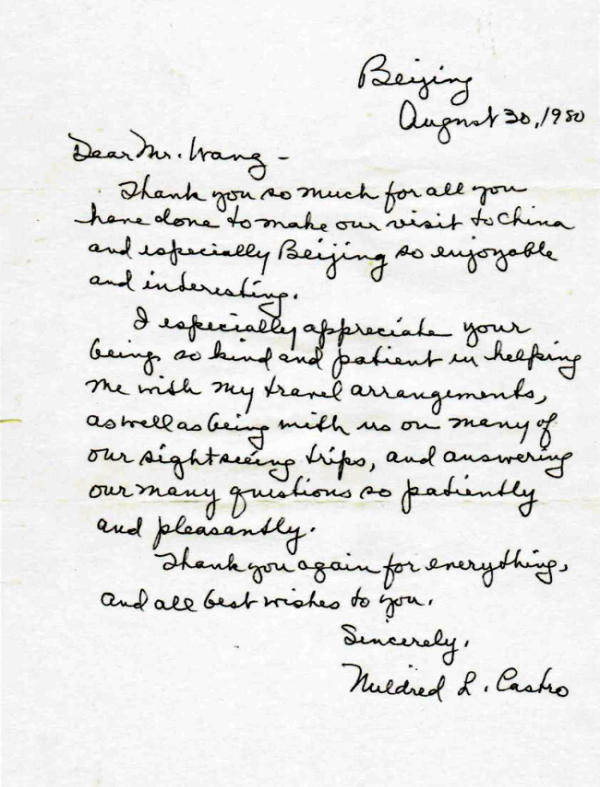 Beijing
August 30, 1980
Dear Mr. Wang -
Thank you so much for all you
have done to make our visit to China
and especially Beijing so enjoyable
and interesting.
I especially appreciate your
being so kind and patient in helping
me with my travel arrangements,
as well as being with us on many of
our sightseeing trips, and answering
our many questions so patiently
and pleasantly.
Thank you again for everything,
and all best wishes to you.
Sincerely,
Mildred L. Castro